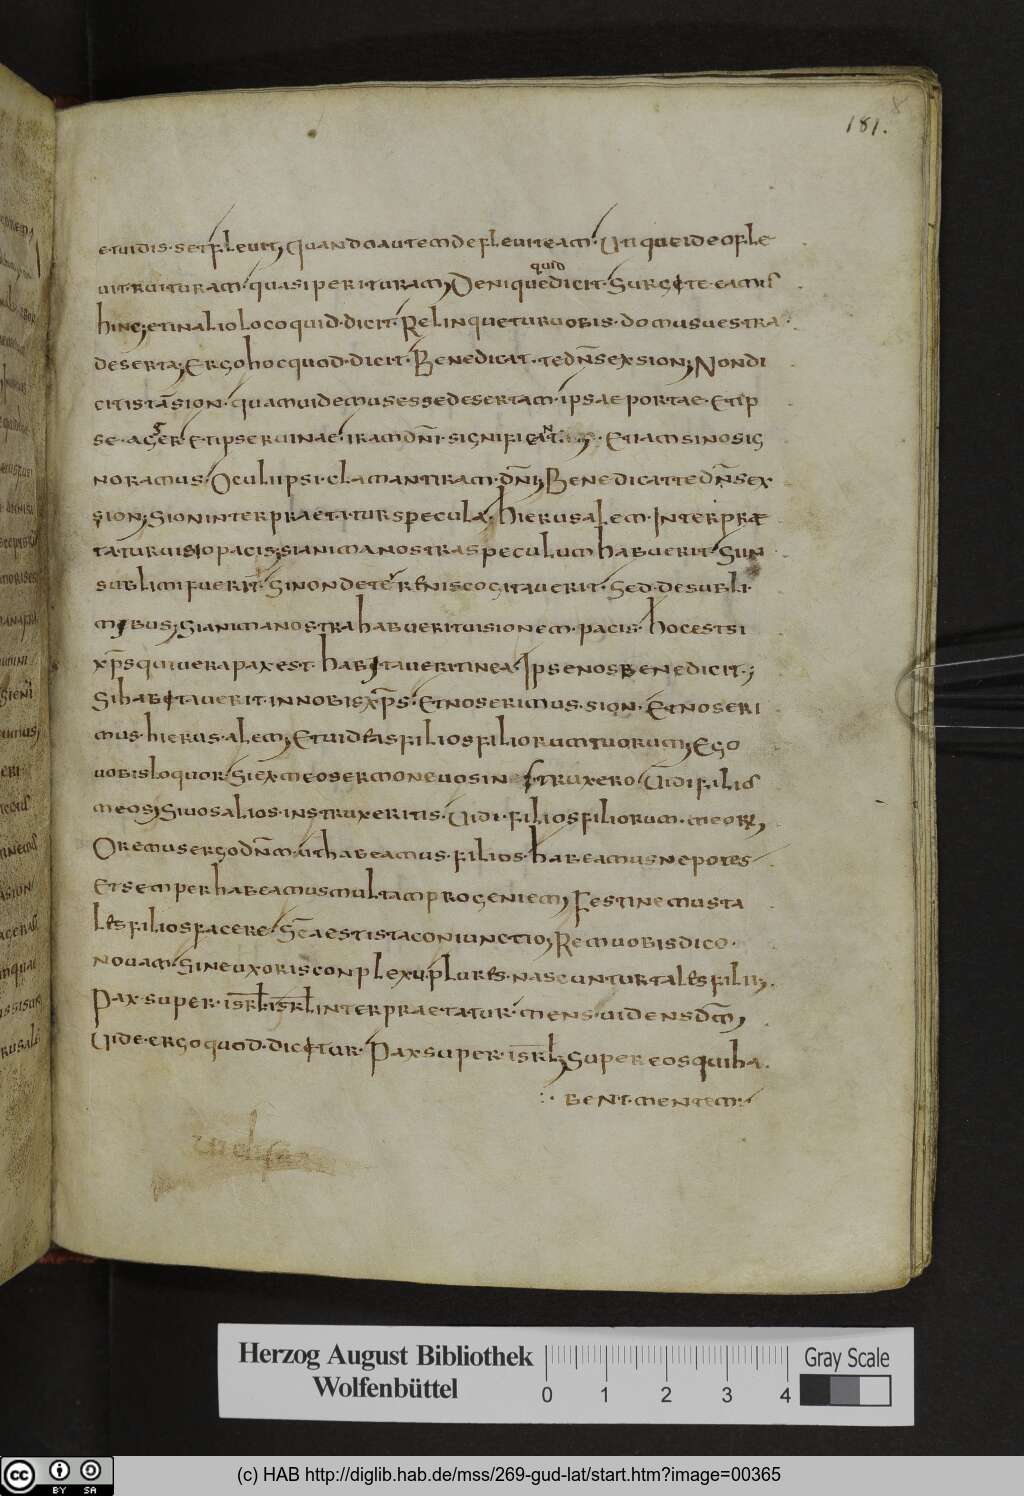 181.
et uidis. set fleuit; Quando autem defleuit eam. Utique ideo fle
uit. ruituram. quasi perituram; Denique quid dicit. Surgite. eamus
hinc; et in alio loco quid. dicit. Relinquetur uobis. domus uestra.
deserta; Ergo hoc quod. dicit. Benedicat. te dn̄s ex sion; Non di
cit istā sion. quam uidemus esse desertam. ipsae portae. Et ip
se. agger. Et ipse ruinae. iram dn̄i. significant. Etiam si nos ig
noramus. Oculi ipsi. clamant iram. dn̄i; Benedicat te dn̄s ex
sion; Sion interpraetatur specula. hierusalem. Interprae
tatur uisio pacis; si anima nostra speculum habuerit. Si in
sublimi fuerit. Si non de terrenis cogitauerit. Sed. de subli
mibus; Si anima nostra habuerit uisionem. pacis. hoc est si
xp̄s qui uera pax est. habitauerit in ea. Ipse nos benedicit.;
Si habitauerit in nobis xp̄s. Et nos erimus. sion. Et nos eri
mus. hierus.alem; Et uideas filios filiorum tuorum; Ego
uobis loquor. Si ex meo sermone uos instruxero. Uidi filios
meos; Si uos alios. instruxeritis. Uidi. filios filiorum. meorum;
Oremus ergo dn̄m. ut habeamus. filios. habeamus nepotes
Et semper habeamus multam progeniem; Festinemus ta
les filios facere. Sc̄a est ista coniunctio; Rem uobis dico.
nouam. Sine uxoris conplexu. plures. nascuntur tales filii;
Pax super. isrl̄. isrl̄. interpraetatur. mens. uidens dm̄;
Uide. ergo quod. dicitur. Pax super. isrl̄; Super eos qui ha
bent. mentem:
Herzog August Bibliothek
Wolfenbüttel
0 1 2 3 4
Gray Scale
cc BY SA
(c) HAB http://diglib.hab.de/mss/269-gud-lat/start.htm?image=00365